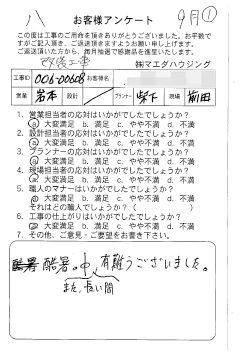 八 お客様アンケート 9月①
この度は工事のご用命を頂きありがとうございました。お手数で
すがご記入頂き、ご返送頂きますようお願い申し上げます。
ご返送頂いた方から、毎月抽選で感謝品を進呈いたします。
㈱マエダハウジング
工事ID 006-00608 お客様名
営業 岩本 設計 プランナー 堅下 現場 前田
1. 営業担当者の応対はいかがでしたでしょうか?
a 大変満足 b. 満足 c. やや不満 d. 不満
2. 設計担当者の応対はいかがでしたでしょうか?
a 大変満足 b. 満足 c. やや不満 d. 不満
3. プランナーの応対はいかがでしたでしょうか?
a 大変満足 b. 満足 c. やや不満 d. 不満
4. 現場担当者の応対はいかがでしたでしょうか?
a 大変満足 b. 満足 c. やや不満 d. 不満
5. 職人のマナーはいかがでしたでしょうか?
a 大変満足 b. 満足 c. やや不満 d. 不満
それはどの職人でしょうか?(
6. 工事の仕上がりはいかがでしたでしょうか?
a 大変満足 b. 満足 c. やや不満 d. 不満
7. その他、ご意見・ご要望をお書き下さい。
酷暑の中 有難うございました。
また、長い間